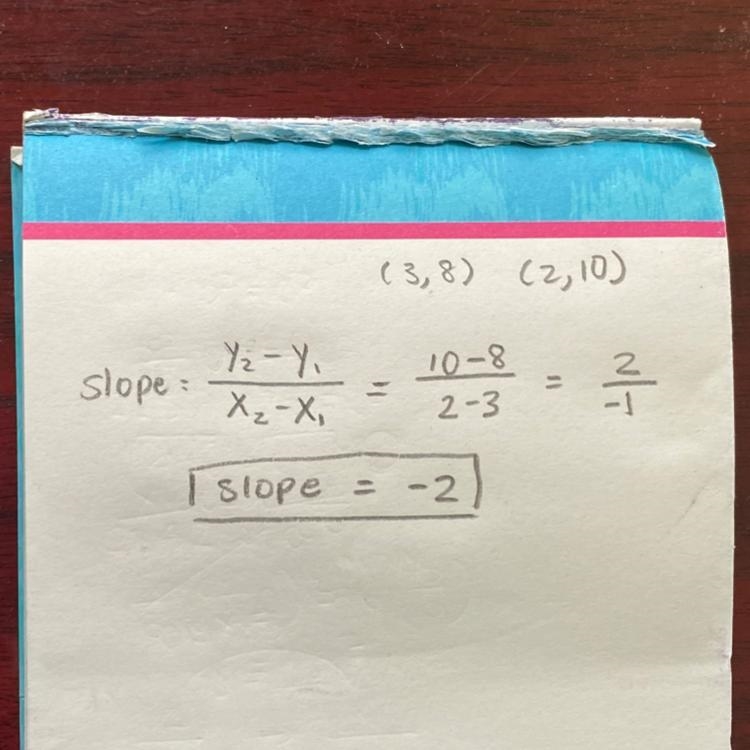 (3,8) (2,10)
slope: y₂-y₁/x₂-x₁ = 10-8/2-3 = 2/-1
slope = -2